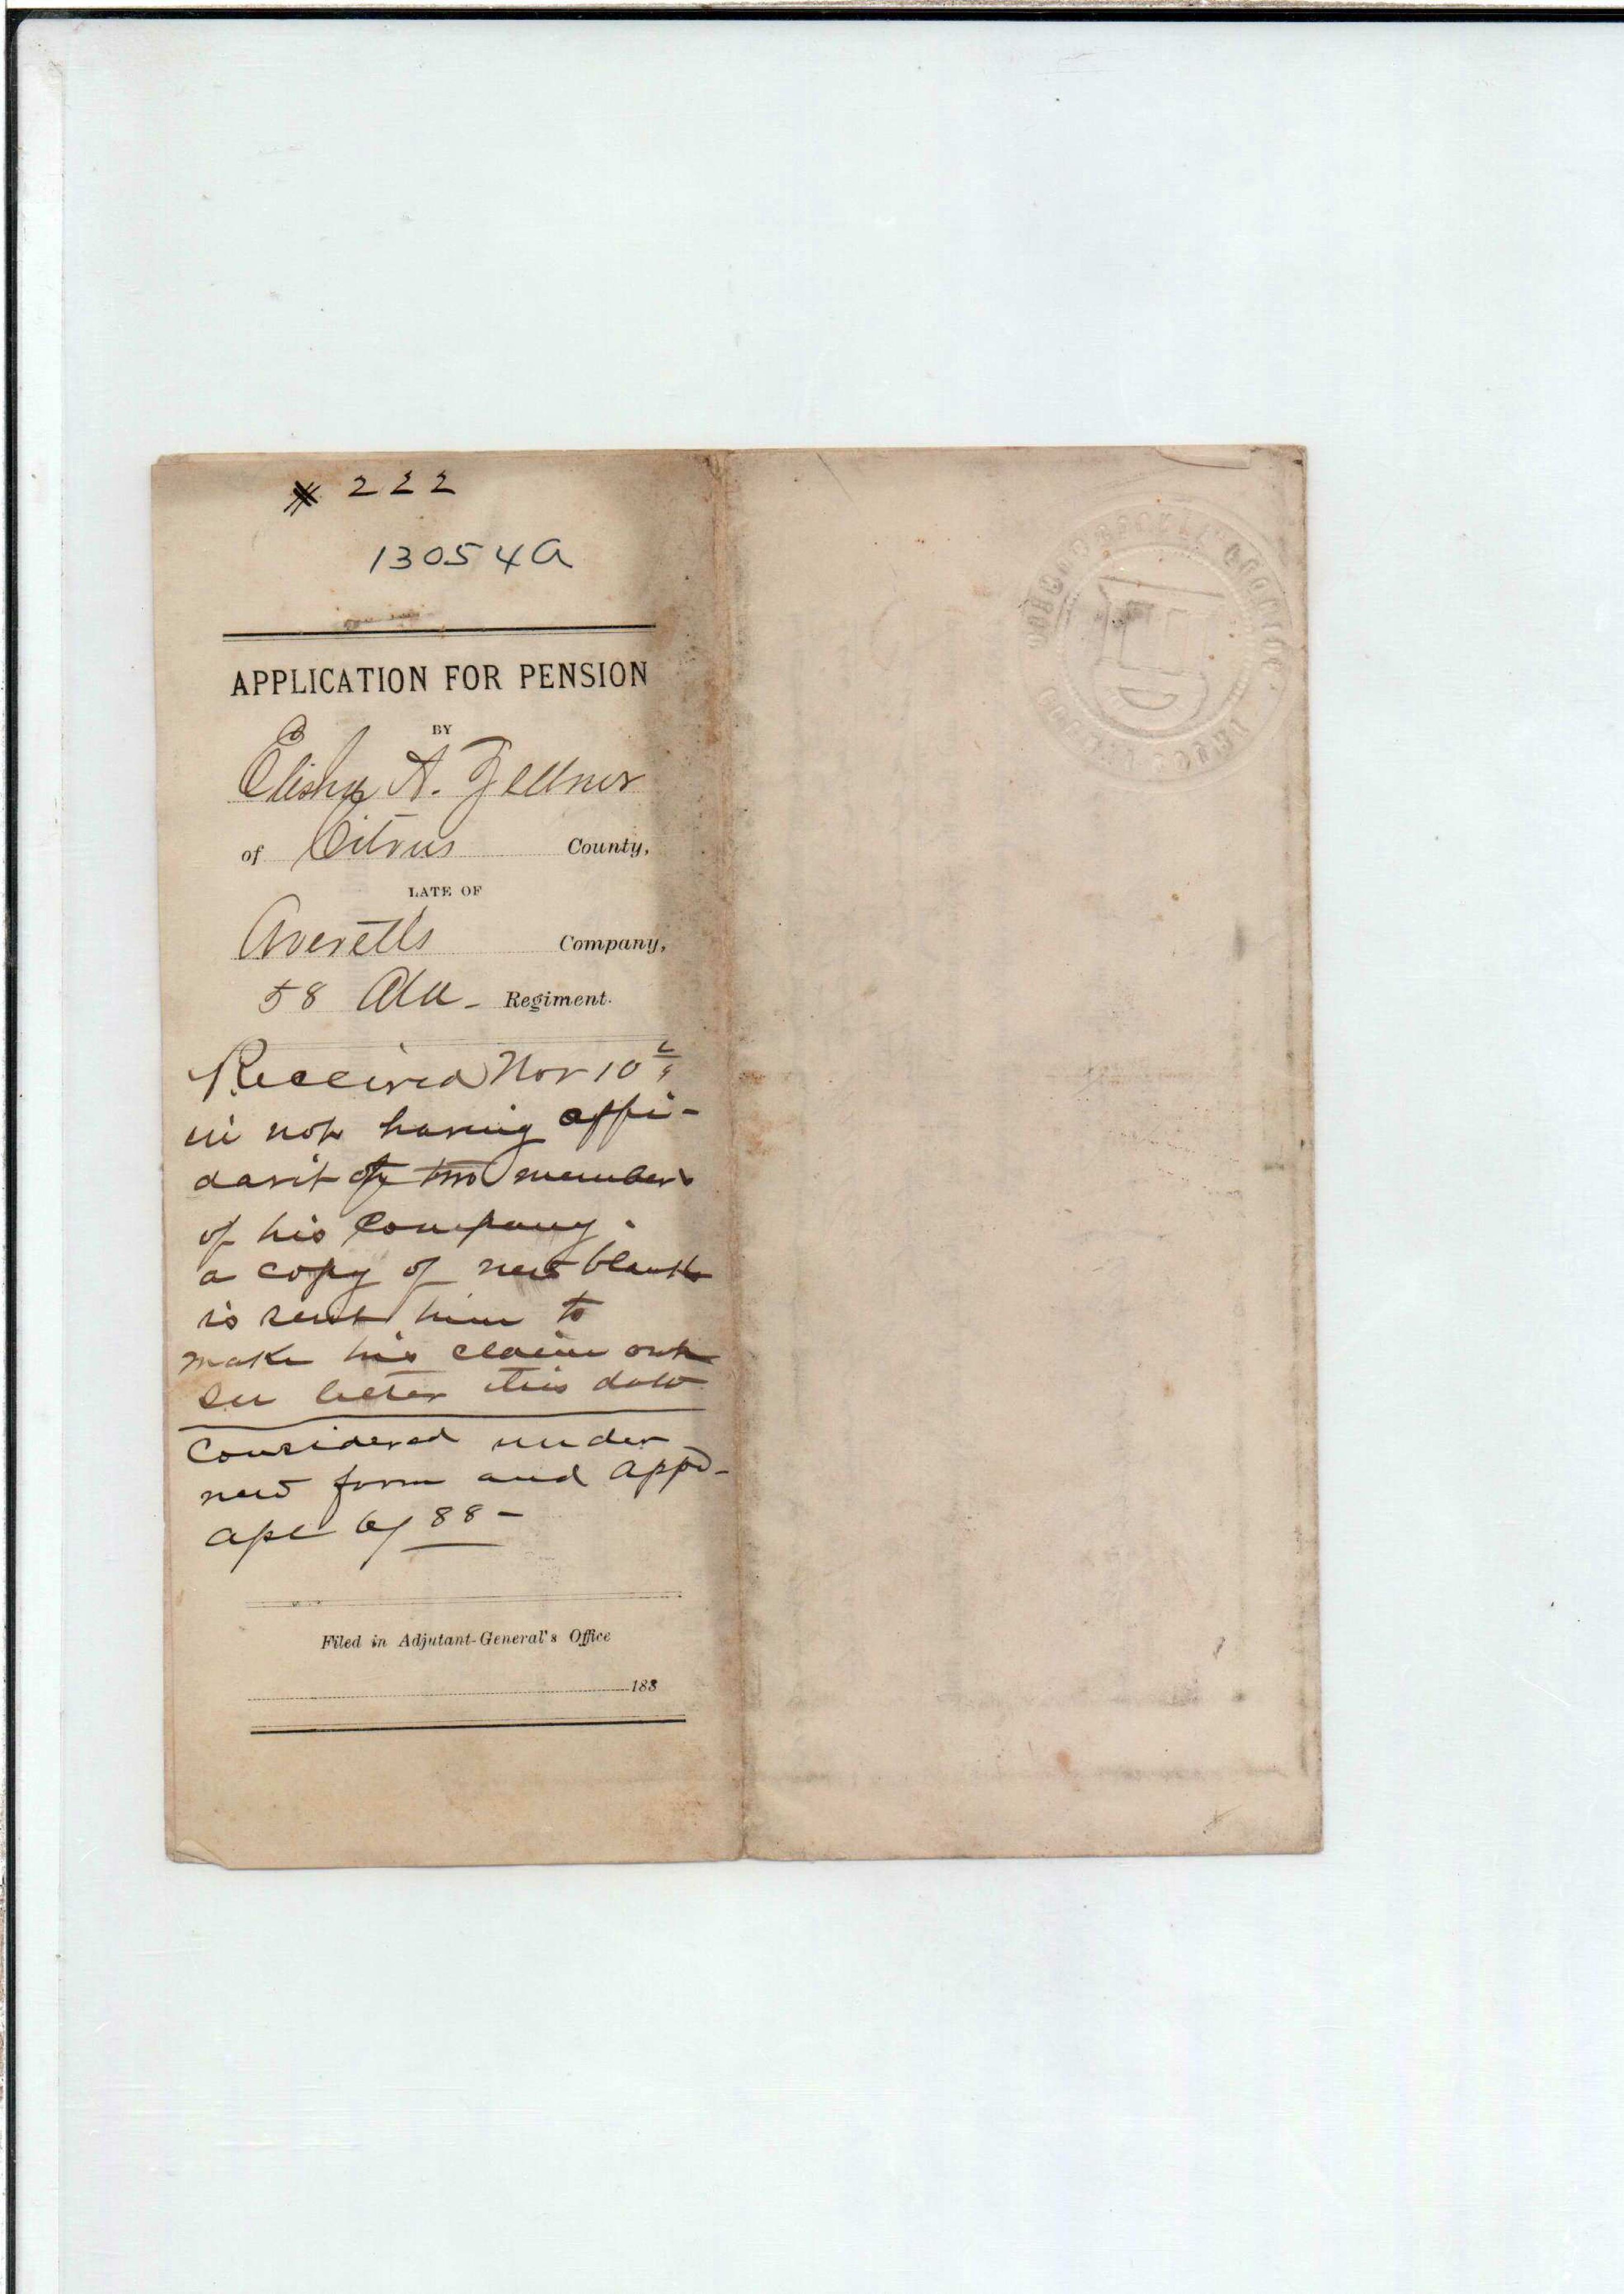 # 222
13054A
APPLICATION FOR PENSION
BY
Elisha A. Zellner
of Citrus County,
LATE OF
Averetts Company,
58 Ala - Regiment.
Received Nov 10
in not having affi-
davit of two members
of his Company.
a copy of new blank
is sent him to
make his claim out
See letter this date
Considered under
new form and appd-
apl 6/ 88 -
Filed in Adjutant-General's Office
188